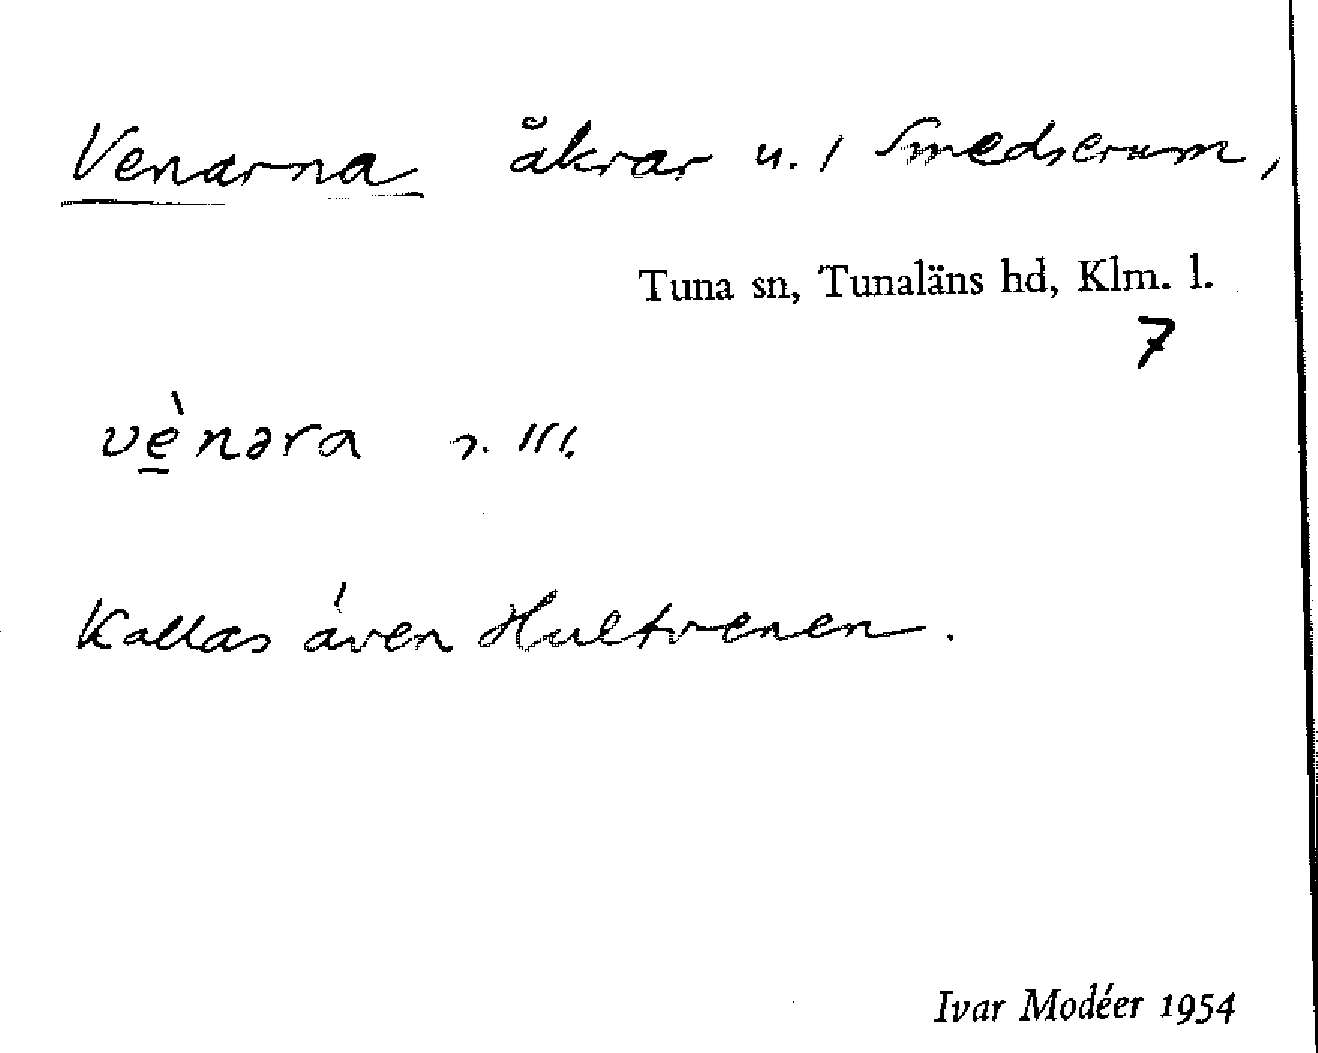 Venarna åkrar u. / Smedserum,
Tuna sn, Tunaläns hd, Klm. l.
7
vènəra n. III.
Kallas även Hultvenen.
Ivar Modéer 1954